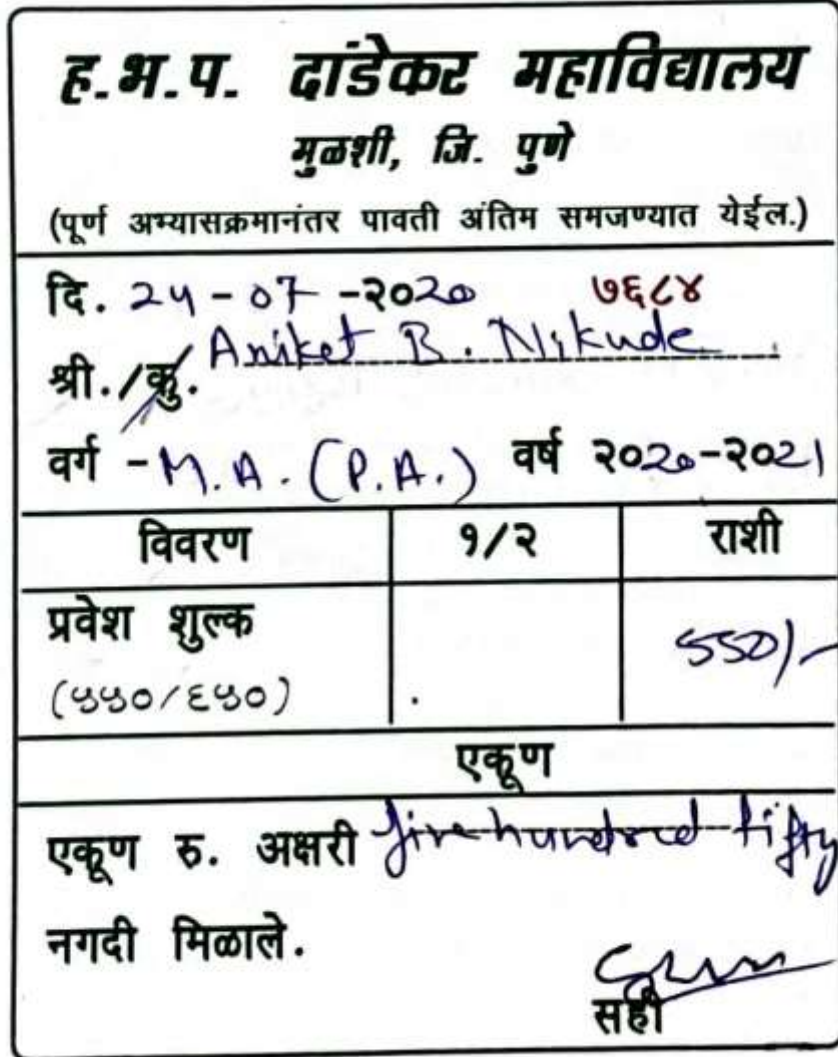 ह.भ.प. दांडेकर महाविद्यालय
मुळशी, जि. पुणे
(पूर्ण अभ्यासक्रमानंतर पावती अंतिम समजण्यात येईल.)
दि. 24-07-२०20 ७६८४
श्री./कु. Aniket B. Nikude
वर्ग - M.A. (P.A.) वर्ष २०20-२०21
विवरण १/२ राशी
प्रवेश शुल्क 550/-
(५५०/६५०)
एकूण
एकूण रु. अक्षरी five hundred fifty
नगदी मिळाले.
सही